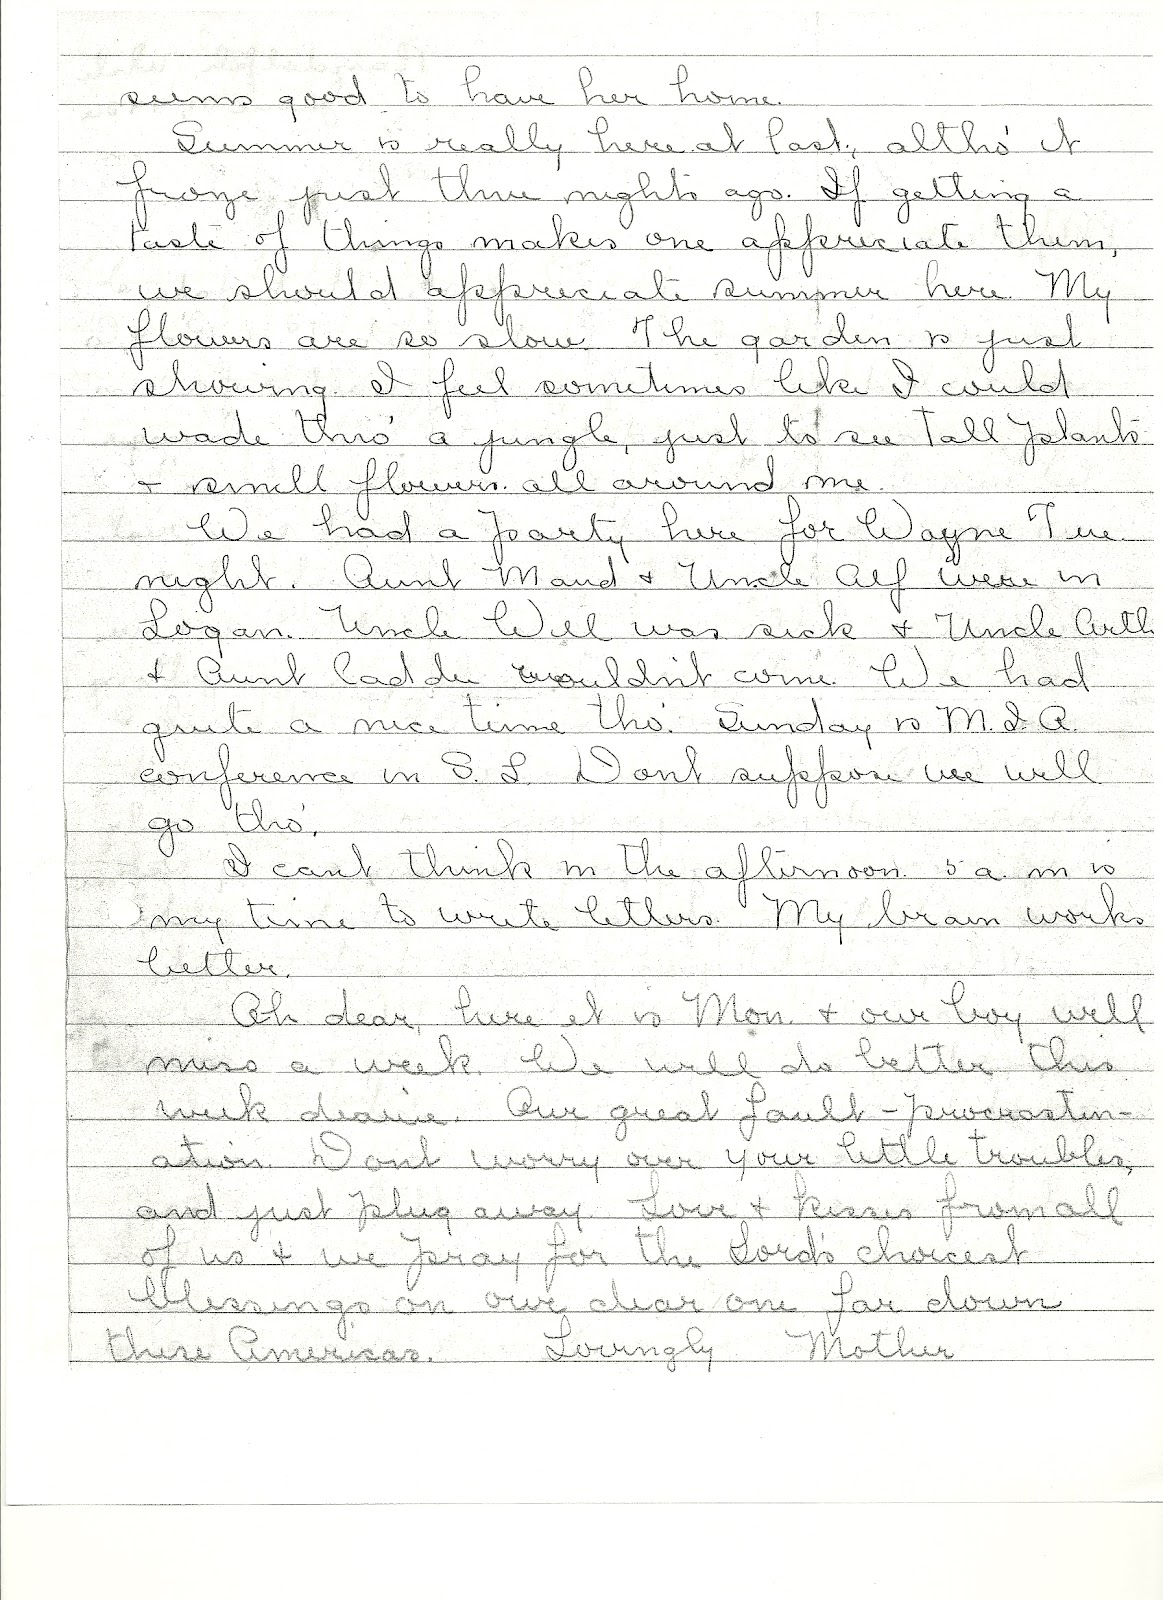 seems good to have her home.
Summer is really here at last, altho' it
froze just three nights ago. If getting a
taste of things makes one appreciate them,
we should appreciate summer here. My
flowers are so slow. The garden is just
showing. I feel sometimes like I could
wade thro' a jungle, just to see tall plants
+ smell flowers all around me.
We had a party here for Wayne Tue.
night. Aunt Maud + Uncle Alf were in
Logan. Uncle Will was sick + Uncle Arth
+ Aunt Caddie wouldn't come. We had
quite a nice time tho'. Sunday is M.I.A.
conference in S. L. Dont suppose we will
go tho'.
I cant think in the afternoon. 5 a. m is
my time to write letters. My brain works
better.
Oh dear, here it is Mon. + our boy will
miss a week. We will do better this
week dearie. Our great fault - procrastin-
ation. Dont worry over your little troubles,
and just plug away. Love + kisses from all
of us + we pray for the Lord's choicest
blessings on our dear one far down
there Americas. Lovingly Mother